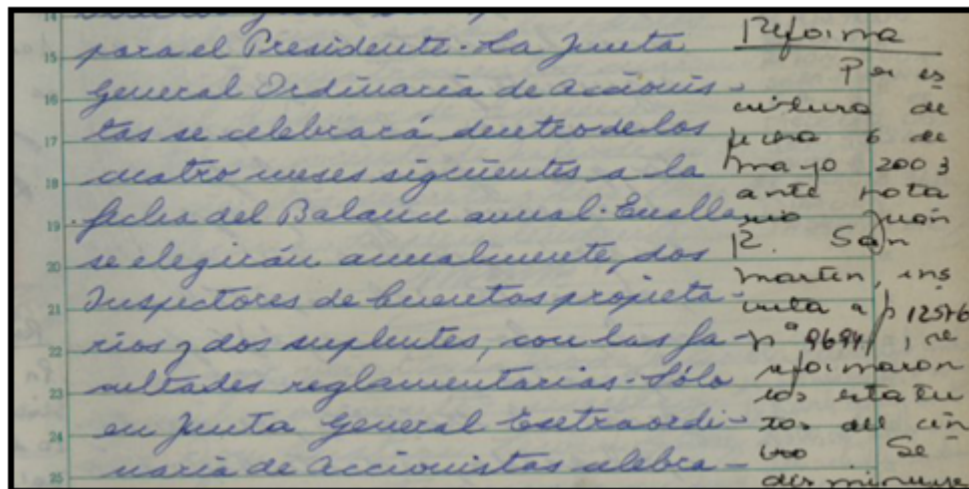 para el Presidente. La Junta
General Ordinaria de Accionis-
tas se celebrará dentro de los
cuatro meses siguientes a la
fecha del Balance anual. En ella
se elegirán anualmente, dos
Inspectores de Cuentas propieta-
rios y dos suplentes, con las fa-
cultades reglamentarias. Sólo
en Junta General Extraordi-
naria de Accionistas celebra-
Reforma
Por es
critura de
fecha 6 de
mayo 2003
ante nota
rio Juan
R. San
Martin, ins
crita a fs 12576
nº 9694, se
reformaron
los estatu
tos del cen
tro Se
disminuye
14
15
16
17
18
19
20
21
22
23
24
25